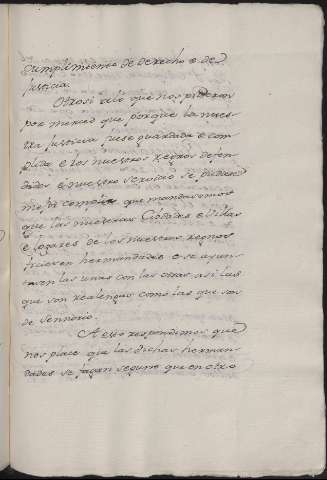 Cumplimiento de derecho e de
justicia.
Otrosi a lo que nos pidieron
por merced que porque la nues-
tra justicia fuese guardada e com-
plida e los nuestros regnos defen-
didos e nuestro servicio se pudiese
que mandasemos
que las nuestras Cibdades e Villas
e logares de los nuestros regnos
ficiesen hermandades e se ayun-
tasen las unas con las otras, asi las
que son realengas como las que son
de Sennorio.
A esto respondemos que
nos place que las dichas herman-
dades se fagan segunt que en otro